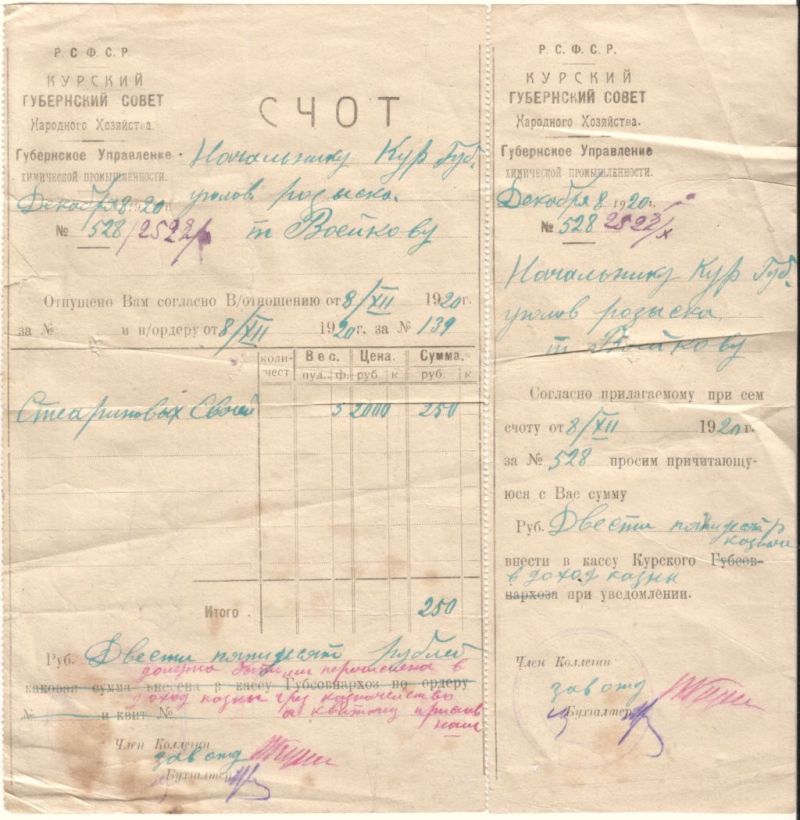 Р.С.Ф.С.Р.
КУРСКИЙ
ГУБЕРНСКИЙ СОВЕТ
Народного Хозяйства.
Губернское Управление
ХИМИЧЕСКОЙ ПРОМЫШЛЕННОСТИ.
Декабря 8 1920 г.
№ 528/2522/х
СЧОТ
Начальнику Кур Губ.
уголов розыска.
т Войкову
Отпущено Вам согласно В/отношению от 8/XII 1920 г.
за № и н/ордеру от 8/XII 1920 г. за № 139
коли-чест Вес. Цена. Сумма.
пуд. ф. руб к руб. к
Стеариновых Свечей 5 2000 250
Итого 250
Руб. Двести пятьдесят рублей
должна быть перечислена в
каковая сумма внесена в кассу Губсовнархоз по ордеру
доход казны чрез казначейство
№ и квит №
а квитанц
нам
Член Коллегии
зав отд
Бухгалтер
Р.С.Ф.С.Р.
КУРСКИЙ
ГУБЕРНСКИЙ СОВЕТ
Народного Хозяйства.
Губернское Управление
ХИМИЧЕСКОЙ ПРОМЫШЛЕННОСТИ.
Декабря 8 1920 г.
№ 528 2522/х
Начальнику Кур Губ.
уголов розыска
т Войкову
Согласно прилагаемому при сем
счоту от 8/XII 1920 г.
за № 528 просим причитающу-
юся с Вас сумму
Руб. Двести пятьдесят р
внести в кассу Курского Губсов-
в доход казны
нархоза при уведомлении.
Член Коллегии
зав отд
Бухгалтер